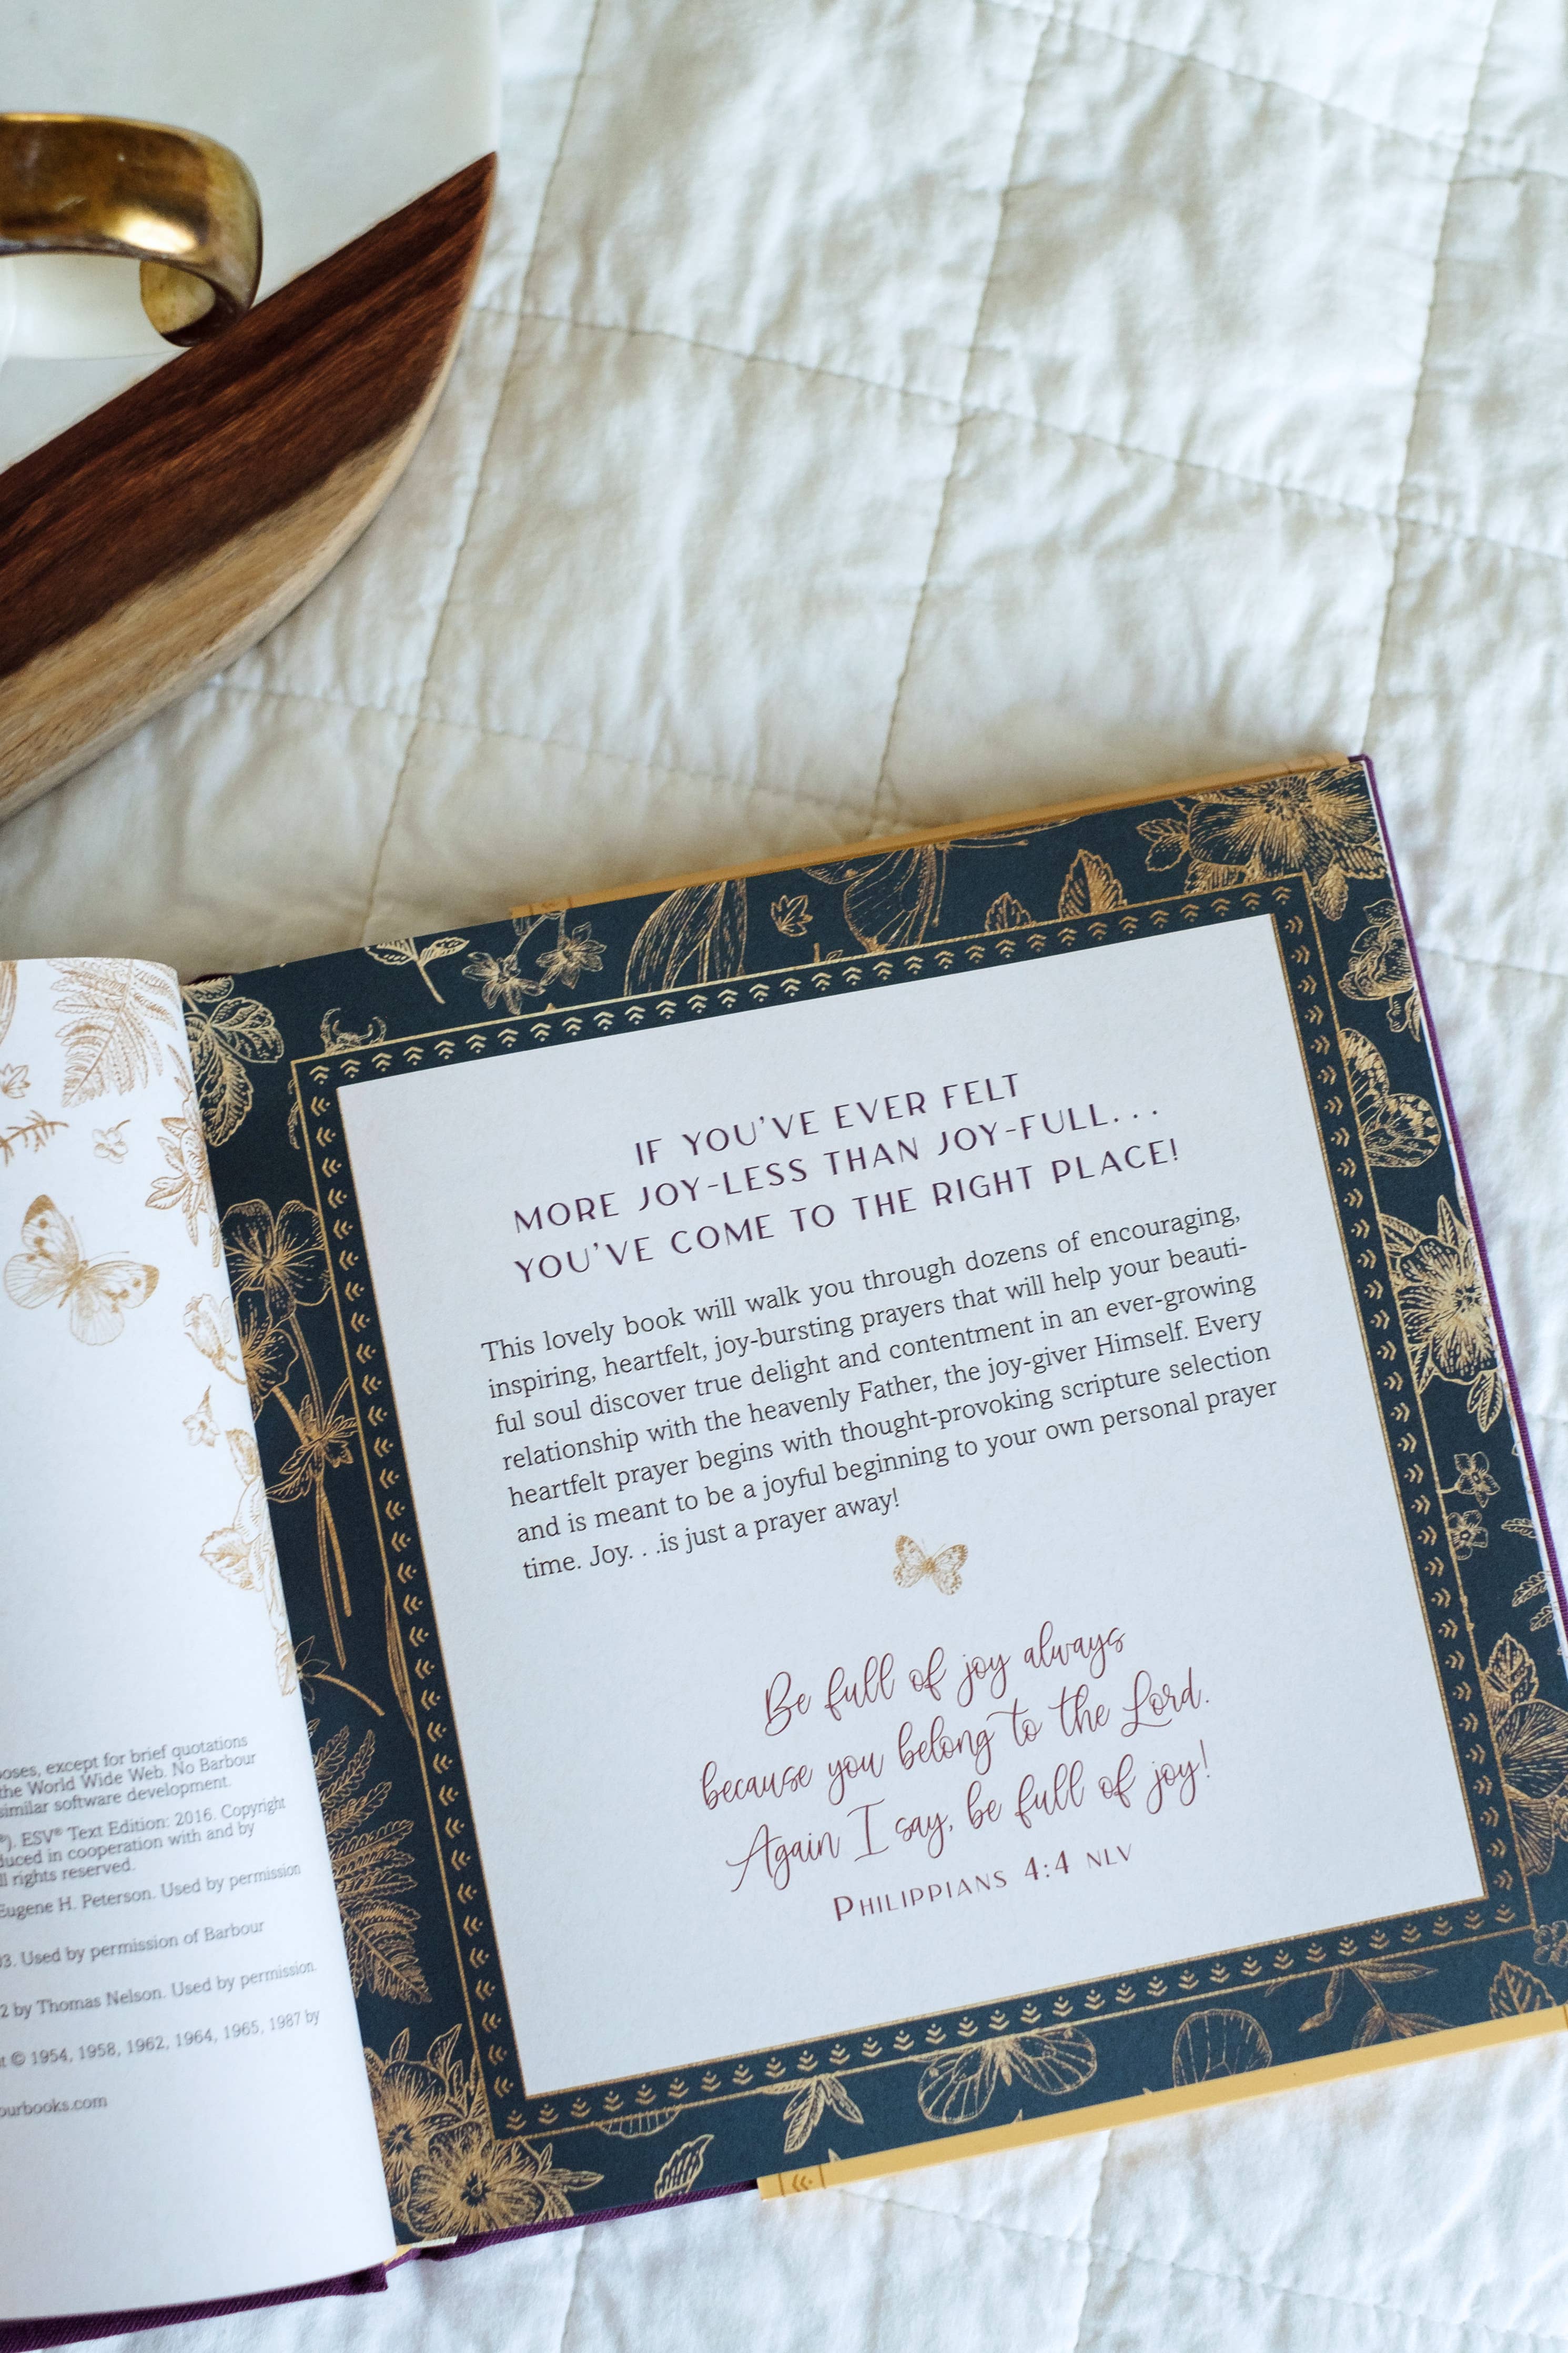 oses, except for brief quotations
the World Wide Web. No Barbour
similar software development.
®). ESV® Text Edition: 2016. Copyright
duced in cooperation with and by
ll rights reserved.
Eugene H. Peterson. Used by permission
03. Used by permission of Barbour
2 by Thomas Nelson. Used by permission.
t © 1954, 1958, 1962, 1964, 1965, 1987 by
ourbooks.com
IF YOU'VE EVER FELT
MORE JOY-LESS THAN JOY-FULL...
YOU'VE COME TO THE RIGHT PLACE!
This lovely book will walk you through dozens of encouraging,
inspiring, heartfelt, joy-bursting prayers that will help your beauti-
ful soul discover true delight and contentment in an ever-growing
relationship with the heavenly Father, the joy-giver Himself. Every
heartfelt prayer begins with thought-provoking scripture selection
and is meant to be a joyful beginning to your own personal prayer
time. Joy. . .is just a prayer away!
Be full of joy always
because you belong to the Lord.
Again I say, be full of joy!
PHILIPPIANS 4:4 NLV